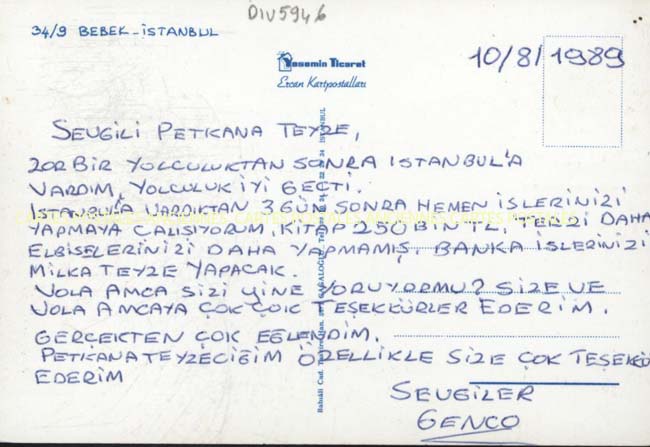 DIV5946
34/9 BEBEK-İSTANBUL
10/8/1989
Yasemin Ticaret
Ercan Kartpostalları
SEVGİLİ PETKANA TEYZE,
ZOR BİR YOLCULUKTAN SONRA ISTANBUL'A
VARDIM, YOLCULUK İYİ GEÇTİ.
İSTANBUL'A VARDIKTAN 3 GÜN SONRA HEMEN İSLERİNİZİ
YAPMAYA ÇALIŞIYORUM, KİTAP 250 BİN TL, TERZİ DAHA
ELBİSELERİNİZİ DAHA YAPMAMIŞ, BANKA İSLERİNİZİ
MİLKA TEYZE YAPACAK.
VOLA AMCA SİZİ YİNE YORUYORMU? SİZE VE
VOLA AMCAYA ÇOK ÇOK TEŞEKKÜRLER EDERİM.
GERÇEKTEN ÇOK EĞLENDİM.
PETKANA TEYZECİĞİM ÖZELLİKLE SİZE ÇOK TEŞEKKÜ
EDERİM
SEVGİLER
GENCO
Babıali Cad. CAĞALOĞLU İSTANBUL